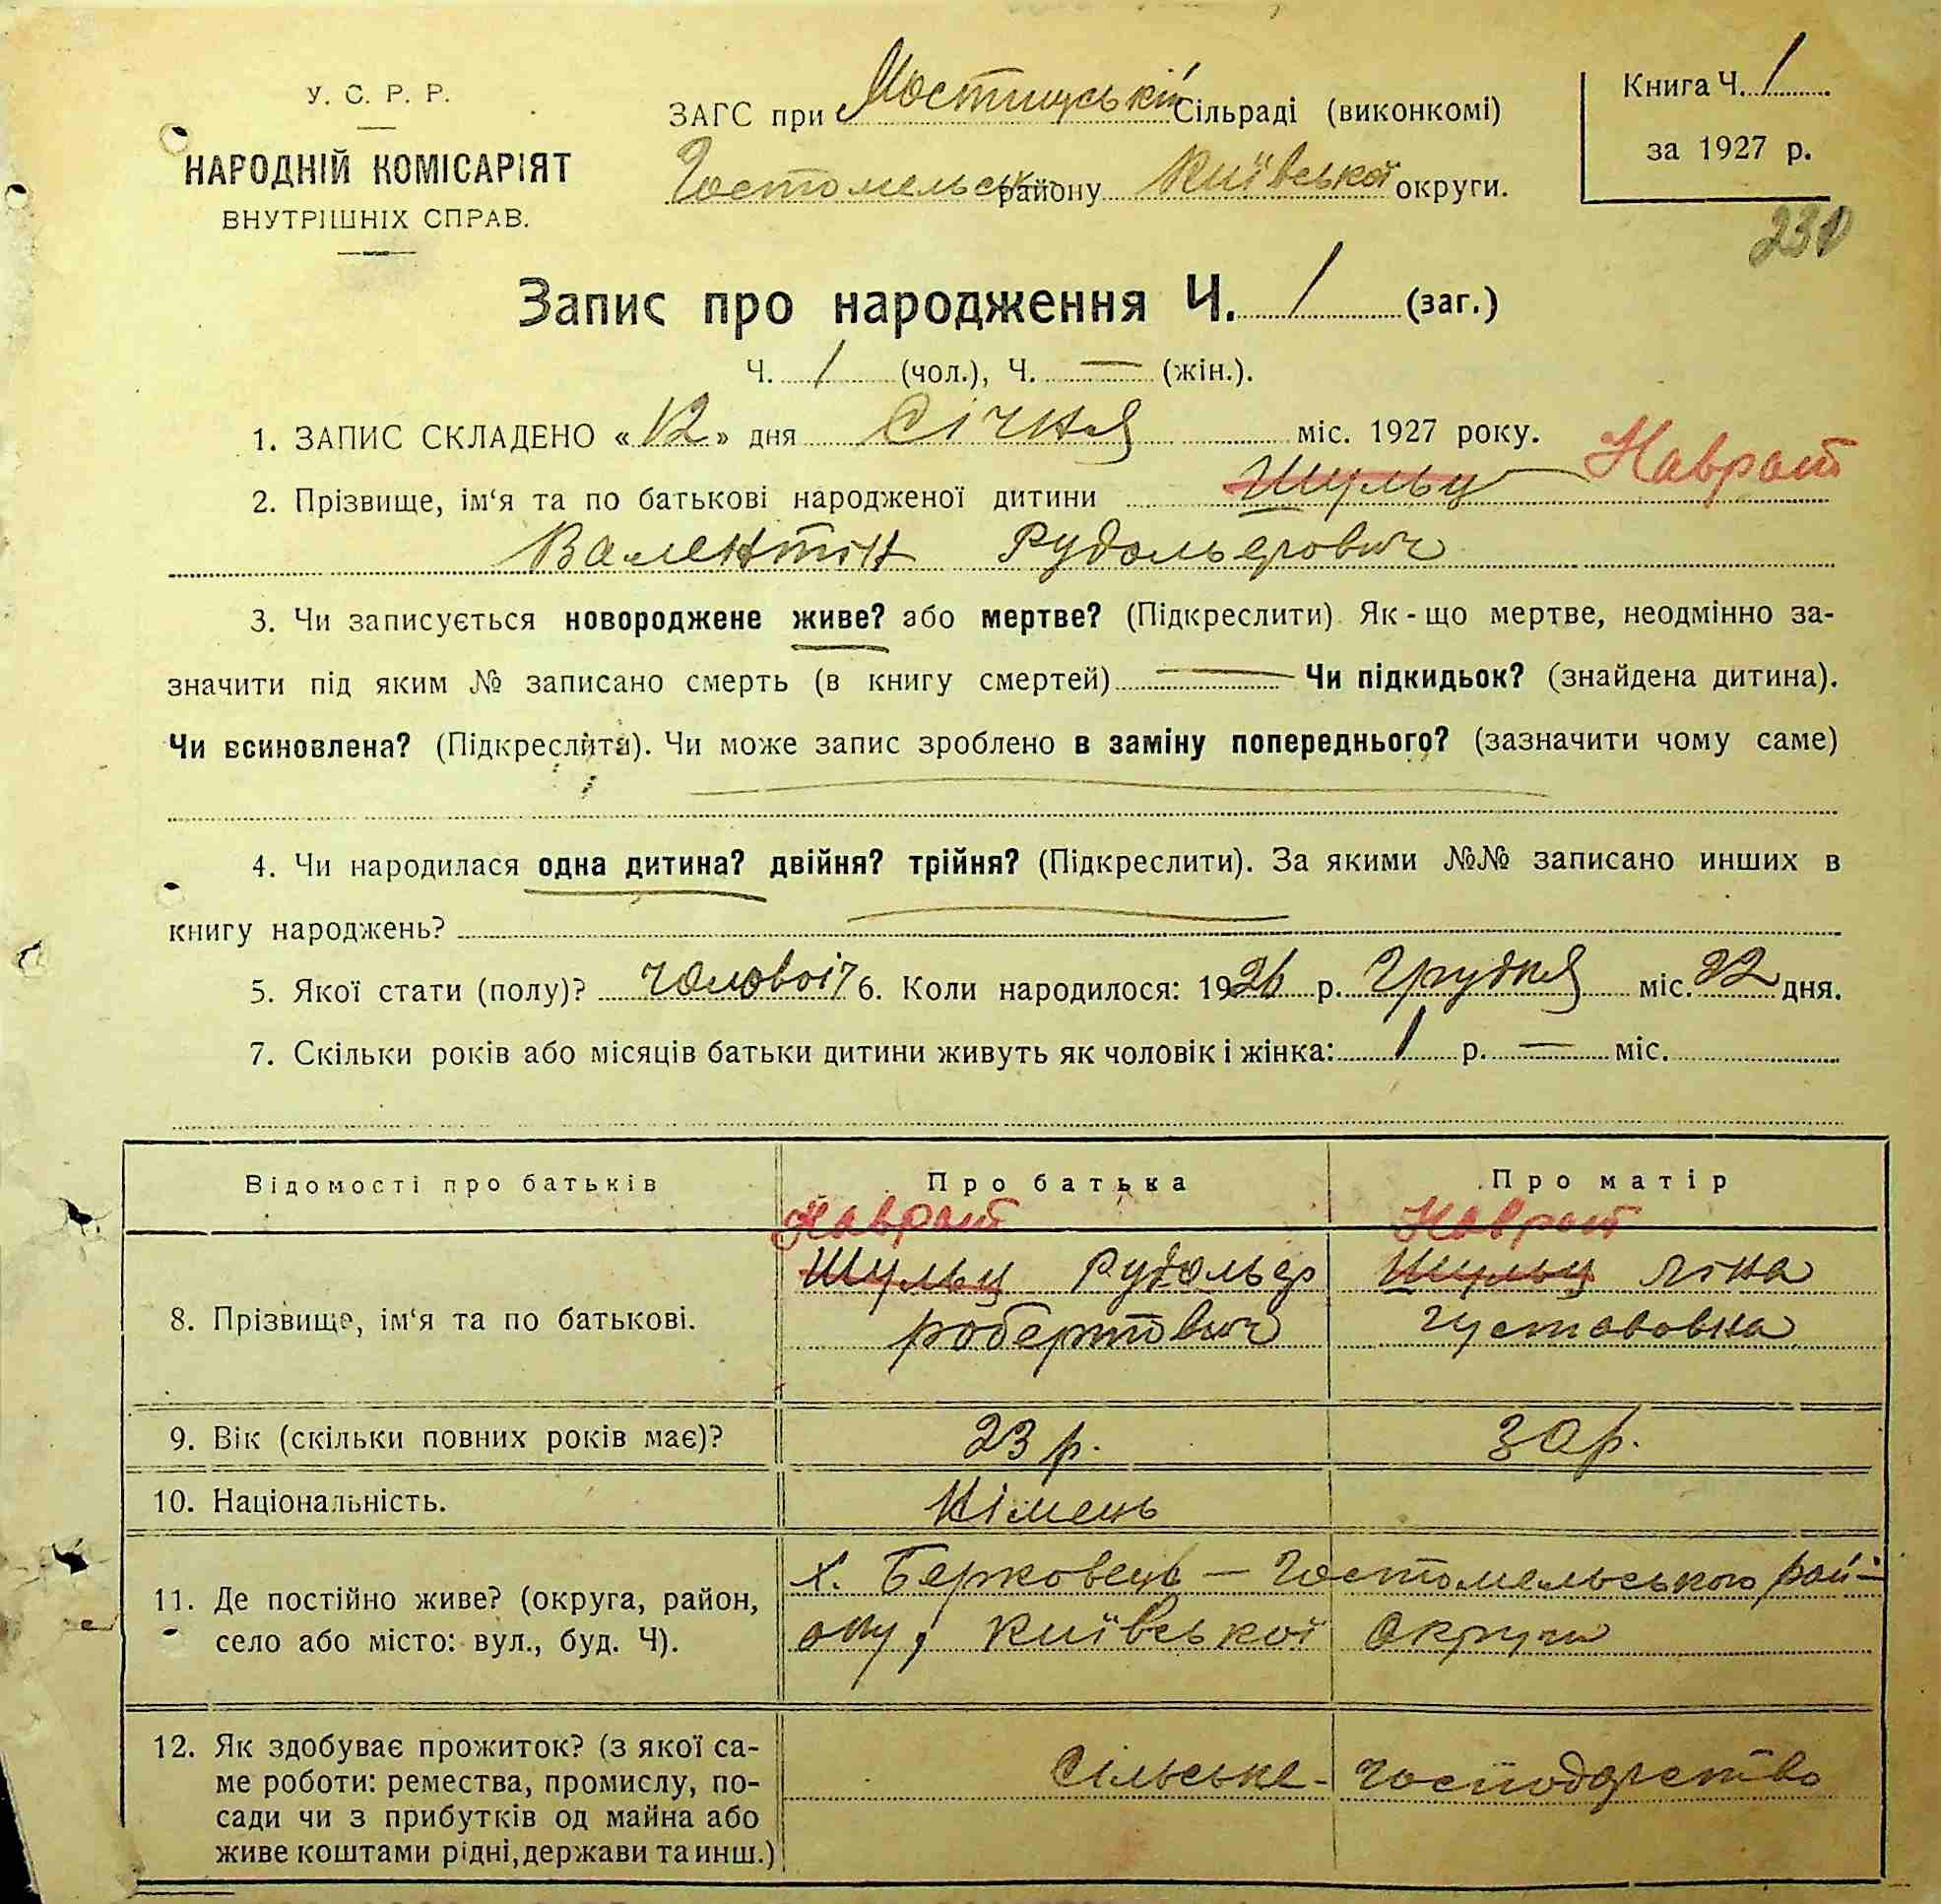 У. С. Р. Р.
НАРОДНІЙ КОМІСАРІЯТ
ВНУТРІШНІХ СПРАВ.
ЗАГС при Мостищській Сільраді (виконкомі)
Гостомельськ району Київської округи.
Книга Ч. 1
за 1927 р.
230
Запис про народження Ч. 1 (заг.)
Ч. 1 (чол.), Ч. — (жін.).
1. ЗАПИС СКЛАДЕНО «12» дня Січня міс. 1927 року.
2. Прізвище, ім'я та по батькові народженої дитини Шульц Наврот
Валентін Рудольфович
3. Чи записується новороджене живе? або мертве? (Підкреслити) Як-що мертве, неодмінно за-
значити під яким № записано смерть (в книгу смертей) — Чи підкидьок? (знайдена дитина).
Чи всиновлена? (Підкреслита). Чи може запис зроблено в заміну попереднього? (зазначити чому саме)
4. Чи народилася одна дитина? двійня? трійня? (Підкреслити). За якими №№ записано инших в
книгу народжень?
5. Якої стати (полу)? чоловічої 6. Коли народилося: 1926 р. Грудня міс. 22 дня.
7. Скільки років або місяців батьки дитини живуть як чоловік і жінка: 1 р. — міс.
Відомості про батьків Про батька Про матір
Наврот Наврот
Шульц Рудольф Шульц Ліна
8. Прізвище, ім'я та по батькові. робертович густавовна
9. Вік (скільки повних років має)? 23 р. 30 р.
10. Національність. Німець
11. Де постійно живе? (округа, район, х. Берковець — Гостомельського рай-
село або місто: вул., буд. Ч). ону, Київської округи
12. Як здобуває прожиток? (з якої са-
ме роботи: ремества, промислу, по- Сільське-господарство
сади чи з прибутків од майна або
живе коштами рідні, держави та инш.)